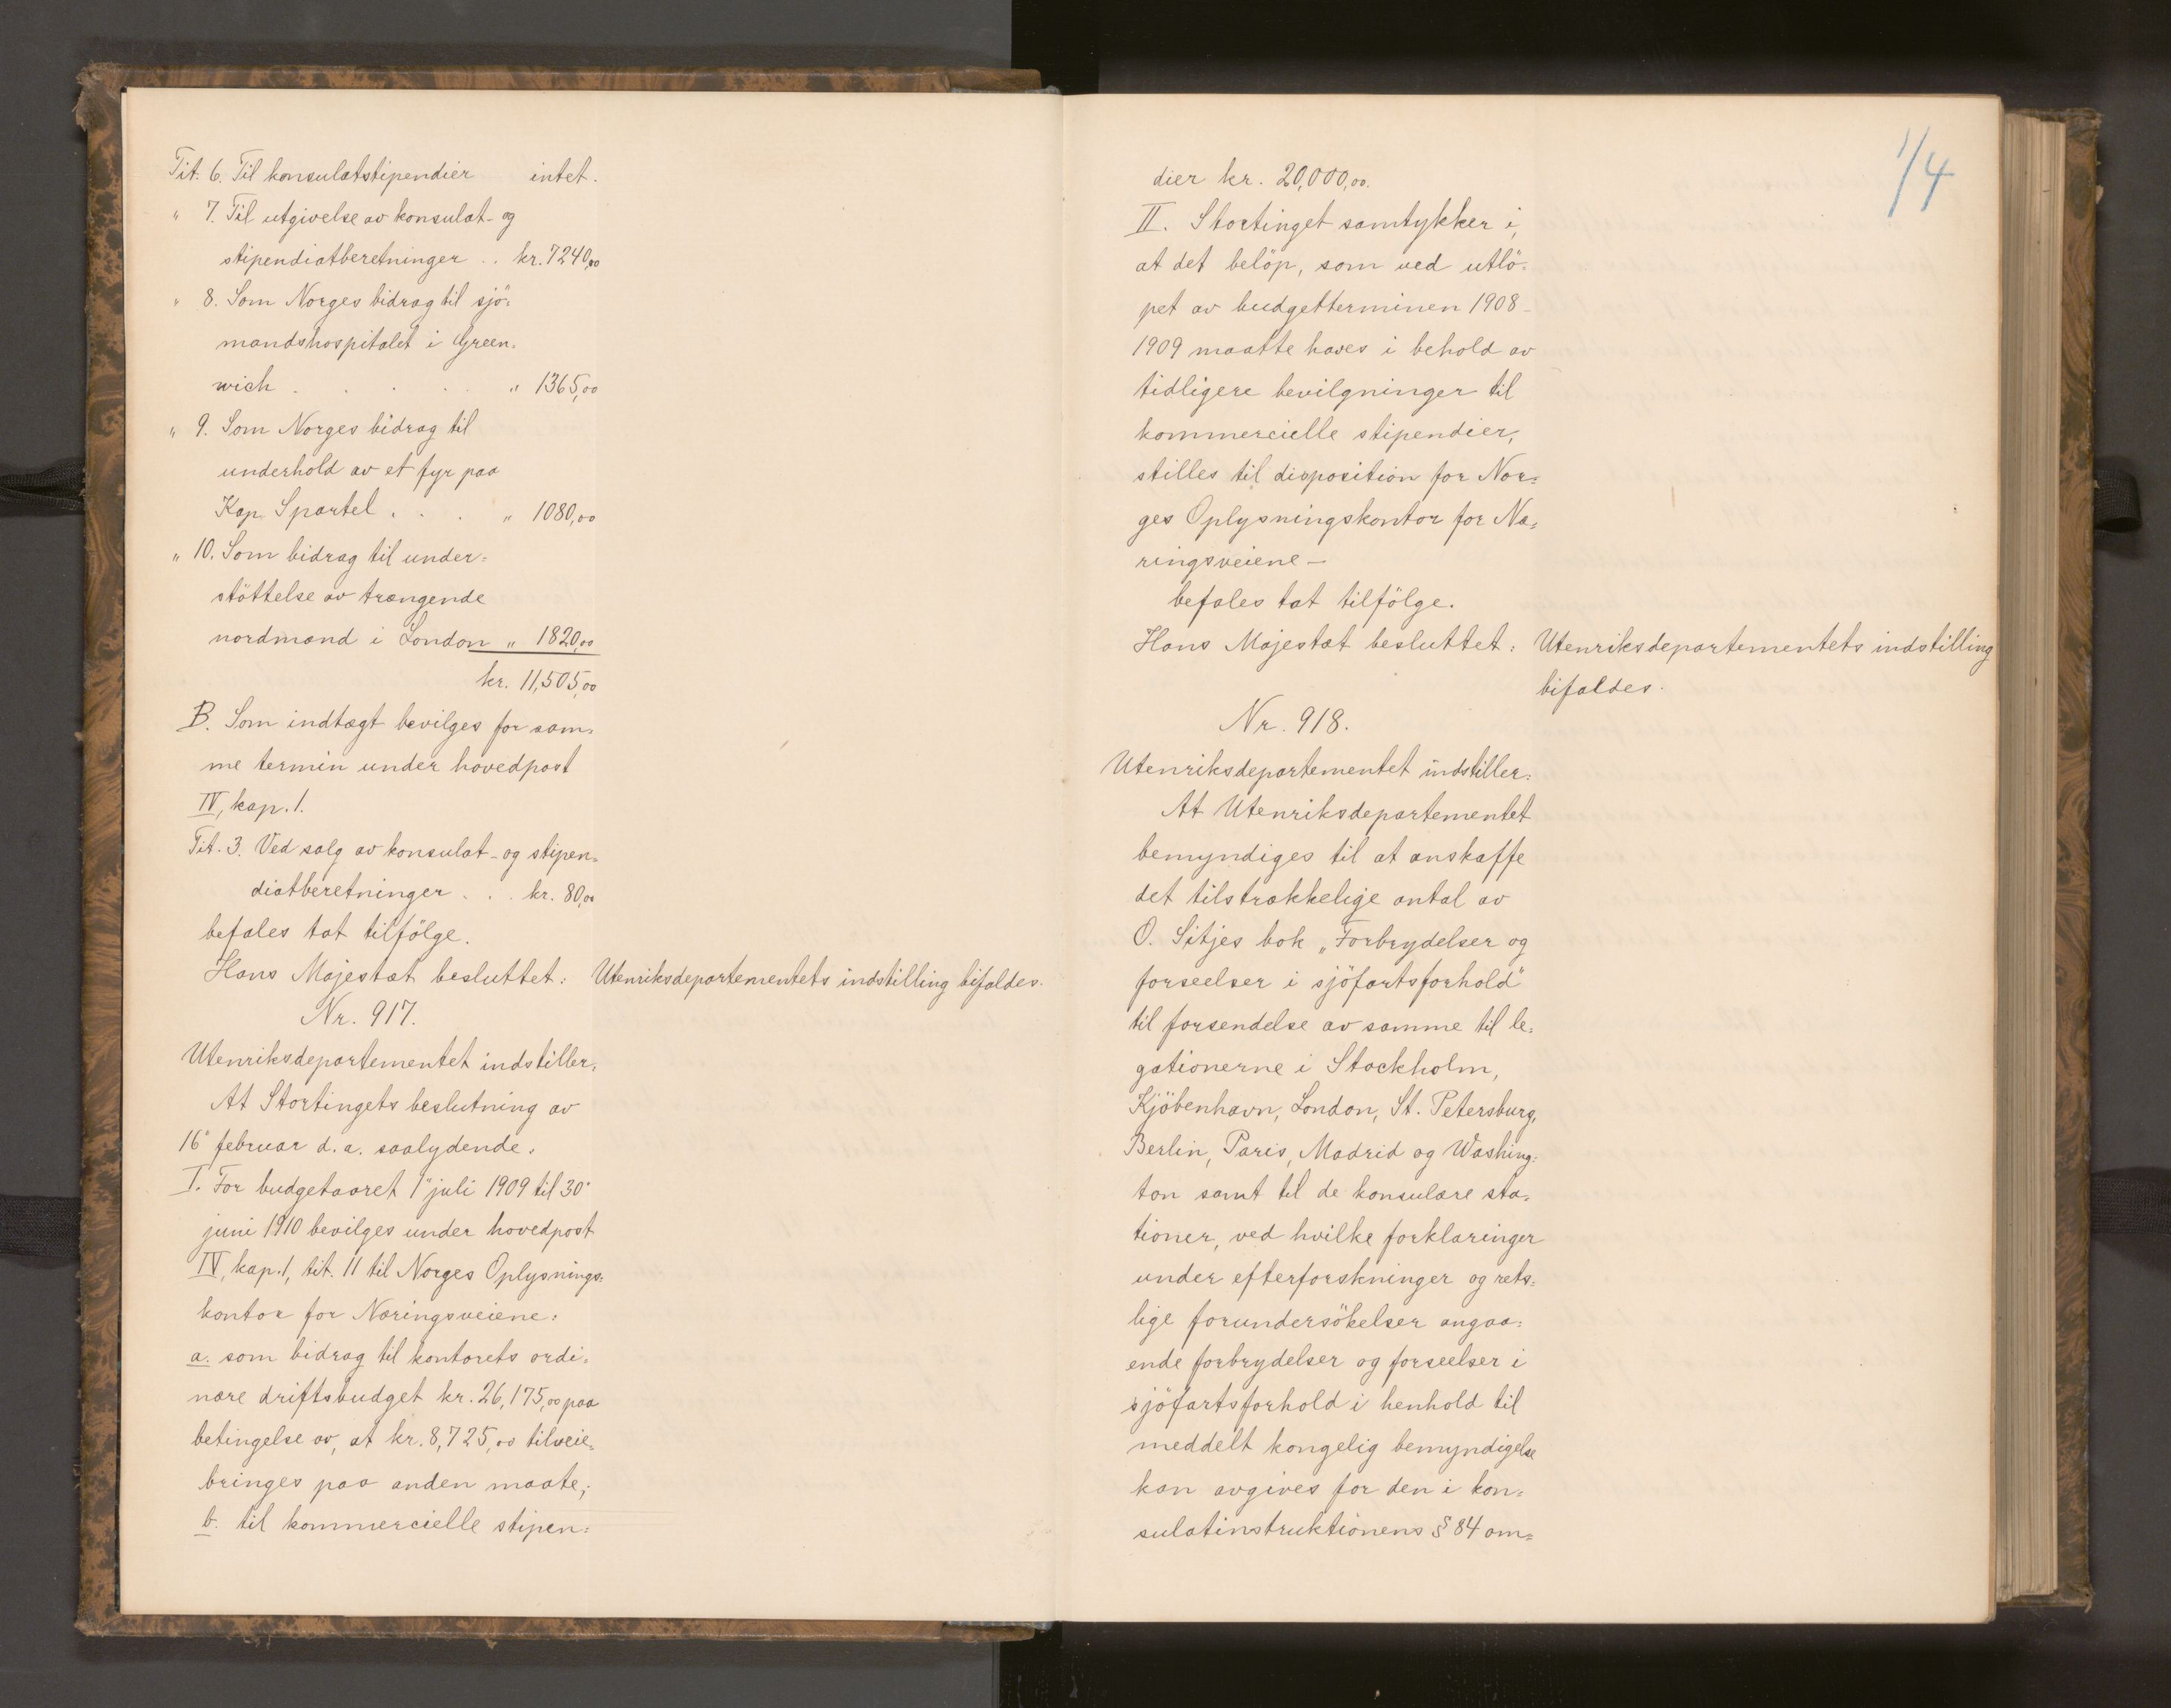 Tit. 6. Til konsulatstipendier intet.
" 7. Til utgivelse av konsulat- og
stipendiatberetninger . . kr. 7240,00
" 8. Som Norges bidrag til sjö=
mandshospitalet i Green=
wich . . . . . " 1365,00
" 9. Som Norges bidrag til
underhold av et fyr paa
Kap Spartel . . . " 1080,00
" 10. Som bidrag til under=
støttelse av trængende
nordmænd i London " 1820,00
kr. 11,505,00
B. Som indtægt bevilges for sam=
me termin under hovedpost
IV, kap. 1.
Tit. 3. Ved salg av konsulat- og stipen=
diatberetninger . . . kr. 80,00
befales tat tilfölge.
Hans Majestæt besluttet: Utenriksdepartementets indstilling bifaldes.
Nr. 917.
Utenriksdepartementet indstiller:
At Stortingets beslutning av
16" februar d. a. saalydende:
I. For budgetaaret 1" juli 1909 til 30"
juni 1910 bevilges under hovedpost
IV, kap. 1, tit. 11 til Norges Oplysnings=
kontor for Næringsveiene:
a. som bidrag til kontorets ordi=
nære driftsbudget kr. 26,175,00 paa
betingelse av, at kr. 8,725,00 tilveie=
bringes paa anden maate;
b. til kommercielle stipen=
1/4
dier kr. 20,000,00.
II. Stortinget samtykker i,
at det belöp, som ved utlö=
pet av budgetterminen 1908-
1909 maatte haves i behold av
tidligere bevilgninger til
kommercielle stipendier,
stilles til disposition for Nor=
ges Oplysningskontor for Næ=
ringsveiene —
befales tat tilfölge.
Hans Majestæt besluttet: Utenriksdepartementets indstilling
bifaldes.
Nr. 918.
Utenriksdepartementet indstiller:
At Utenriksdepartementet
bemyndiges til at anskaffe
det tilstrækkelige antal av
O. Sitjes bok "Forbrydelser og
forseelser i sjöfartsforhold"
til forsendelse av samme til le=
gationerne i Stockholm,
Kjöbenhavn, London, St. Petersburg,
Berlin, Paris, Madrid og Washing=
ton samt til de konsulære sta=
tioner, ved hvilke forklaringer
under efterforskninger og rets=
lige forundersökelser angaa=
ende forbrydelser og forseelser i
sjöfartsforhold i henhold til
meddelt kongelig bemyndigelse
kan avgives for den i kon=
sulatinstruktionens § 84 om=